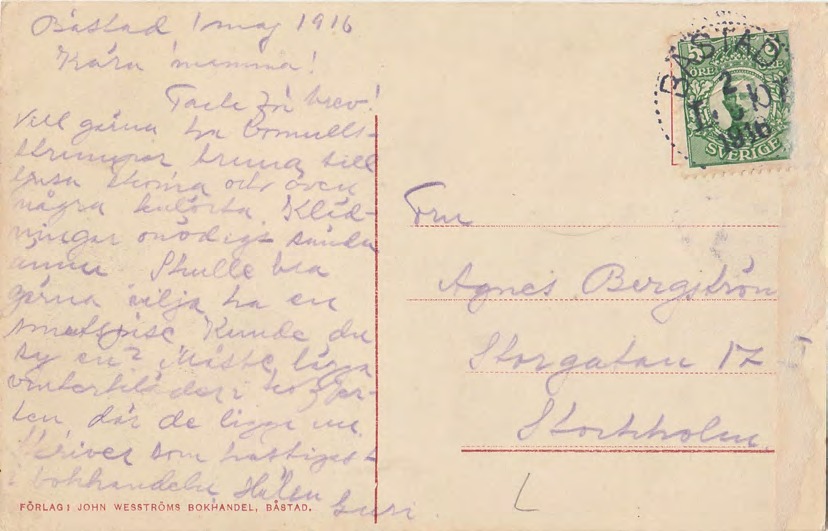 Båstad 1 maj 1916
Kära mamma!
Tack för brev!
Vill gärna ha bomulls-
strumpor bruna till
ljusa skorna och även
några kulörta. Kläd-
ningar onödigt sända
ännu. Skulle bra
gärna vilja ha en
Kunde du
sy en? Måste ligga
vinterkläder i
där de ligga nu.
Skriver som hastigast
i bokhandeln. Hälsn
Guri
FÖRLAG: JOHN WESSTRÖMS BOKHANDEL, BÅSTAD.
BÅSTAD
2
5
10
1916
5
ÖRE
SVERIGE
Fru
Agnes Bergström
Storgatan 17
Stockholm